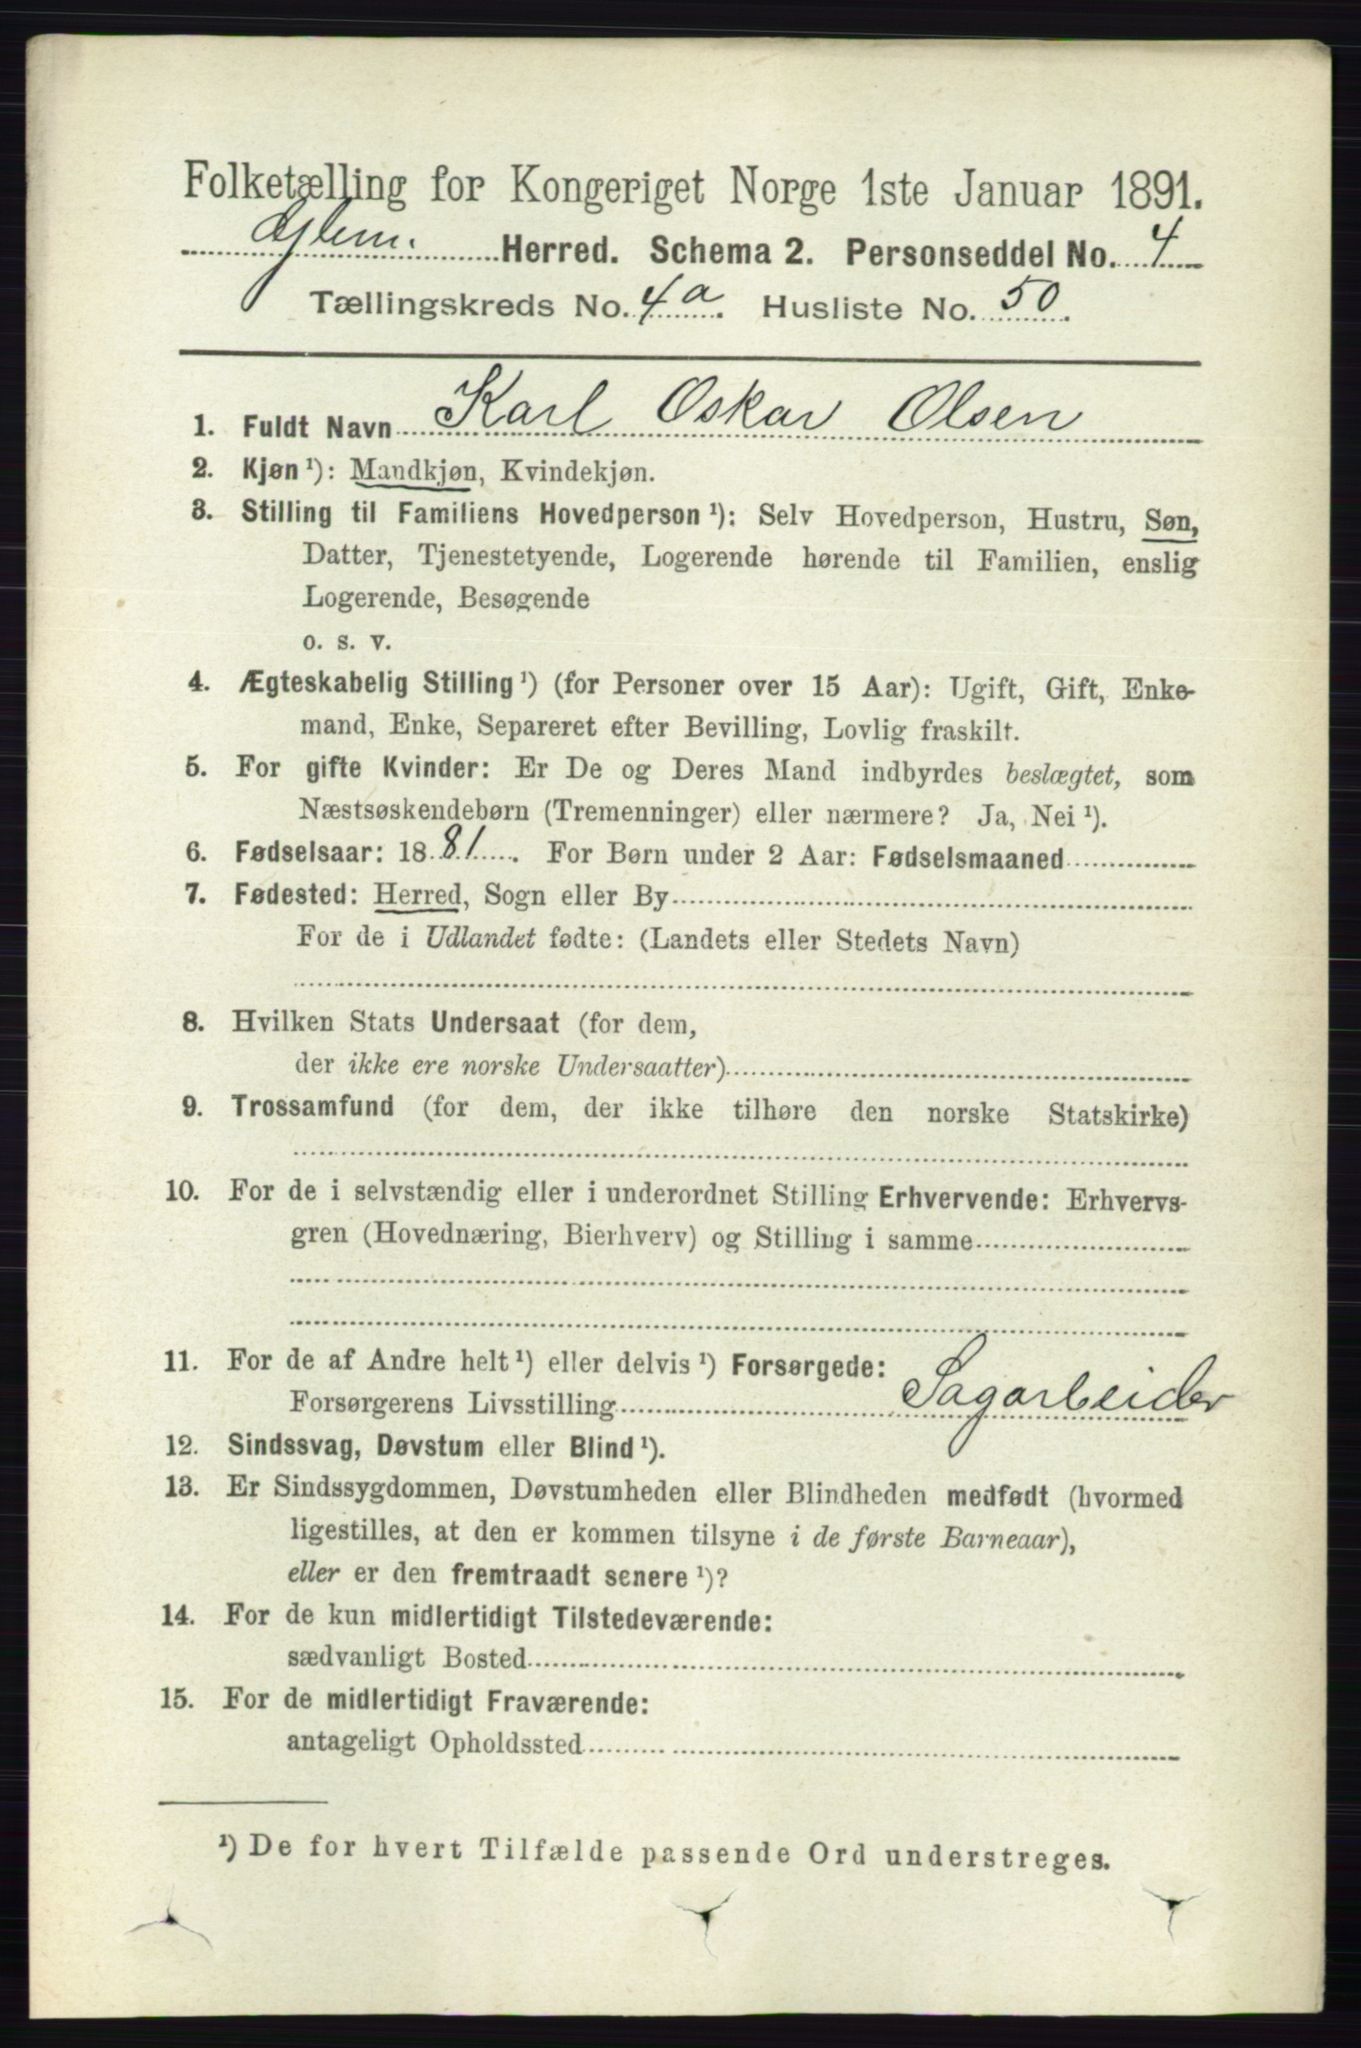 Folketælling for Kongeriget Norge 1ste Januar 1891.
Glem. Herred. Schema 2. Personseddel No. 4
Tællingskreds No. 4a. Husliste No. 50.
1. Fuldt Navn Karl Oskar Olsen
2. Kjøn ¹): Mandkjøn, Kvindekjøn.
3. Stilling til Familiens Hovedperson ¹): Selv Hovedperson, Hustru, Søn,
Datter, Tjenestetyende, Logerende hørende til Familien, enslig
Logerende, Besøgende
o. s. v.
4. Ægteskabelig Stilling ¹) (for Personer over 15 Aar): Ugift, Gift, Enke-
mand, Enke, Separeret efter Bevilling, Lovlig fraskilt.
5. For gifte Kvinder: Er De og Deres Mand indbyrdes beslægtet, som
Næstsøskendebørn (Tremenninger) eller nærmere? Ja, Nei ¹).
6. Fødselsaar: 1881. For Børn under 2 Aar: Fødselsmaaned
7. Fødested: Herred, Sogn eller By
For de i Udlandet fødte: (Landets eller Stedets Navn)
8. Hvilken Stats Undersaat (for dem,
der ikke ere norske Undersaatter)
9. Trossamfund (for dem, der ikke tilhøre den norske Statskirke)
10. For de i selvstændig eller i underordnet Stilling Erhvervende: Erhvervs-
gren (Hovednæring, Bierhverv) og Stilling i samme
11. For de af Andre helt ¹) eller delvis ¹) Forsørgede:
Forsørgerens Livsstilling Sagarbeider
12. Sindssvag, Døvstum eller Blind ¹).
13. Er Sindssygdommen, Døvstumheden eller Blindheden medfødt (hvormed
ligestilles, at den er kommen tilsyne i de første Barneaar),
eller er den fremtraadt senere ¹)?
14. For de kun midlertidigt Tilstedeværende:
sædvanligt Bosted
15. For de midlertidigt Fraværende:
antageligt Opholdssted
¹) De for hvert Tilfælde passende Ord understreges.